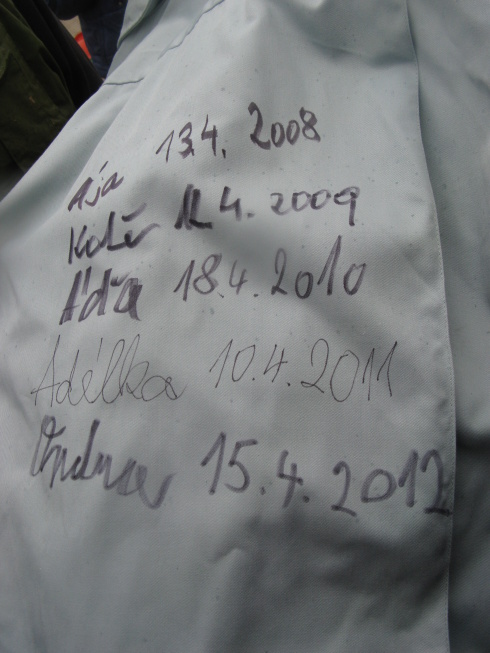 Ája 13.4. 2008
4. 2009
Áďa 18.4. 2010
Adélka 10.4.2011
15.4.2012